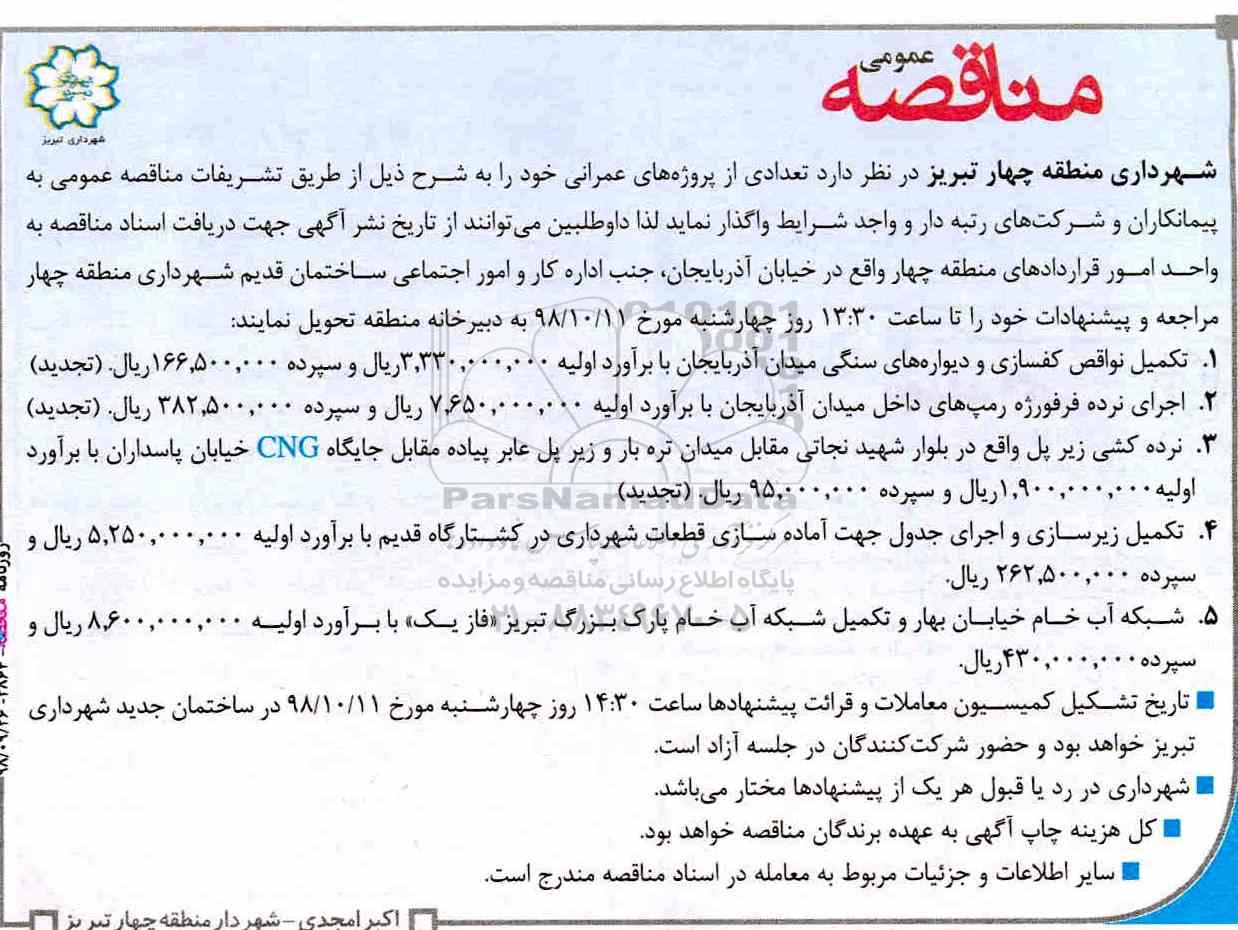 مناقصه
عمومی
شهرداری تبریز
شهرداری منطقه چهار تبریز در نظر دارد تعدادی از پروژه‌های عمرانی خود را به شرح ذیل از طریق تشریفات مناقصه عمومی به
پیمانکاران و شرکت‌های رتبه دار و واجد شرایط واگذار نماید لذا داوطلبین می‌توانند از تاریخ نشر آگهی جهت دریافت اسناد مناقصه به
واحد امور قراردادهای منطقه چهار واقع در خیابان آذربایجان، جنب اداره کار و امور اجتماعی ساختمان قدیم شهرداری منطقه چهار
مراجعه و پیشنهادات خود را تا ساعت ۱۳:۳۰ روز چهارشنبه مورخ ۹۸/۱۰/۱۱ به دبیرخانه منطقه تحویل نمایند:
۱. تکمیل نواقص کفسازی و دیواره‌های سنگی میدان آذربایجان با برآورد اولیه ۳,۳۳۰,۰۰۰,۰۰۰ریال و سپرده ۱۶۶,۵۰۰,۰۰۰ریال. (تجدید)
۲. اجرای نرده فرفورژه رمپ‌های داخل میدان آذربایجان با برآورد اولیه ۷,۶۵۰,۰۰۰,۰۰۰ ریال و سپرده ۳۸۲,۵۰۰,۰۰۰ ریال. (تجدید)
۳. نرده کشی زیر پل واقع در بلوار شهید نجاتی مقابل میدان تره بار و زیر پل عابر پیاده مقابل جایگاه CNG خیابان پاسداران با برآورد
اولیه۱,۹۰۰,۰۰۰,۰۰۰ریال و سپرده ۹۵,۰۰۰,۰۰۰ ریال. (تجدید)
ParsNamadData
۴. تکمیل زیرسازی و اجرای جدول جهت آماده سازی قطعات شهرداری در کشتارگاه قدیم با برآورد اولیه ۵,۲۵۰,۰۰۰,۰۰۰ ریال و
سپرده ۲۶۲,۵۰۰,۰۰۰ ریال.
پایگاه اطلاع رسانی مناقصه و مزایده
۵. شبکه آب خام خیابان بهار و تکمیل شبکه آب خام پارک بزرگ تبریز «فاز یک» با برآورد اولیه ۸,۶۰۰,۰۰۰,۰۰۰ ریال و
۰۲۱-۸۸۳۴۹۶۷۰-۵
سپرده۴۳۰,۰۰۰,۰۰۰ریال.
تاریخ تشکیل کمیسیون معاملات و قرائت پیشنهادها ساعت ۱۴:۳۰ روز چهارشنبه مورخ ۹۸/۱۰/۱۱ در ساختمان جدید شهرداری
تبریز خواهد بود و حضور شرکت‌کنندگان در جلسه آزاد است.
شهرداری در رد یا قبول هر یک از پیشنهادها مختار می‌باشد.
کل هزینه چاپ آگهی به عهده برندگان مناقصه خواهد بود.
سایر اطلاعات و جزئیات مربوط به معامله در اسناد مناقصه مندرج است.
اکبر امجدی – شهردار منطقه چهار تبریز